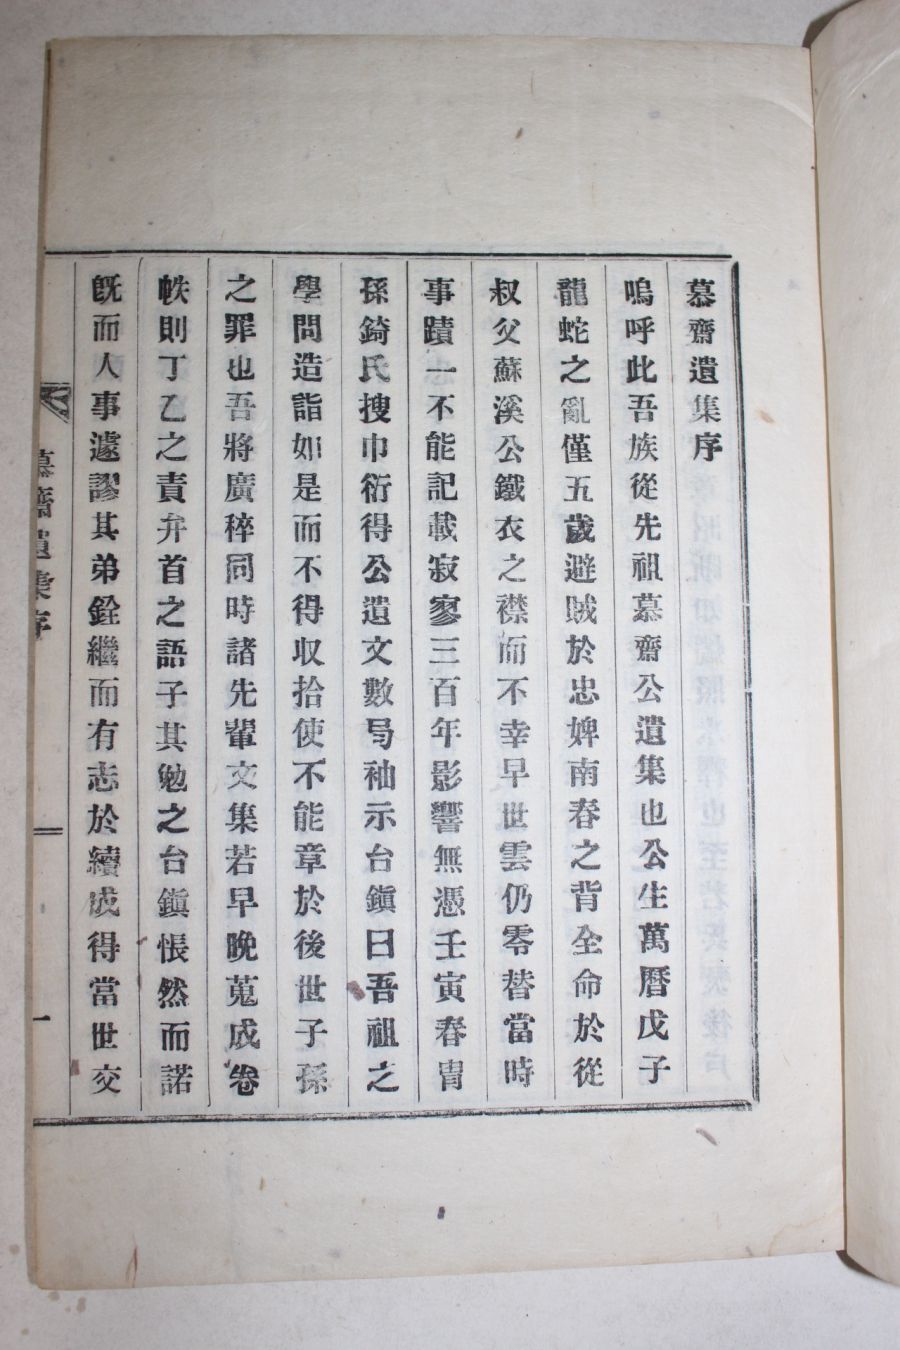 慕齋遺集序
嗚呼此吾族從先祖慕齋公遺集也公生萬曆戊子
龍蛇之亂僅五歲避賊於忠婢南春之背全命於從
叔父蘇溪公鐵衣之襟而不幸早世雲仍零替當時
事蹟一不能記載寂寥三百年影響無憑壬寅春冑
孫錡氏搜巾衍得公遺文數局袖示台鎭曰吾祖之
學問造詣如是而不得收拾使不能章於後世子孫
之罪也吾將廣稡同時諸先輩文集若早晩蒐成卷
帙則丁乙之責弁首之語子其勉之台鎭悵然而諾
旣而人事遽謬其弟銓繼而有志於續成得當世交
慕齋遺集序
一